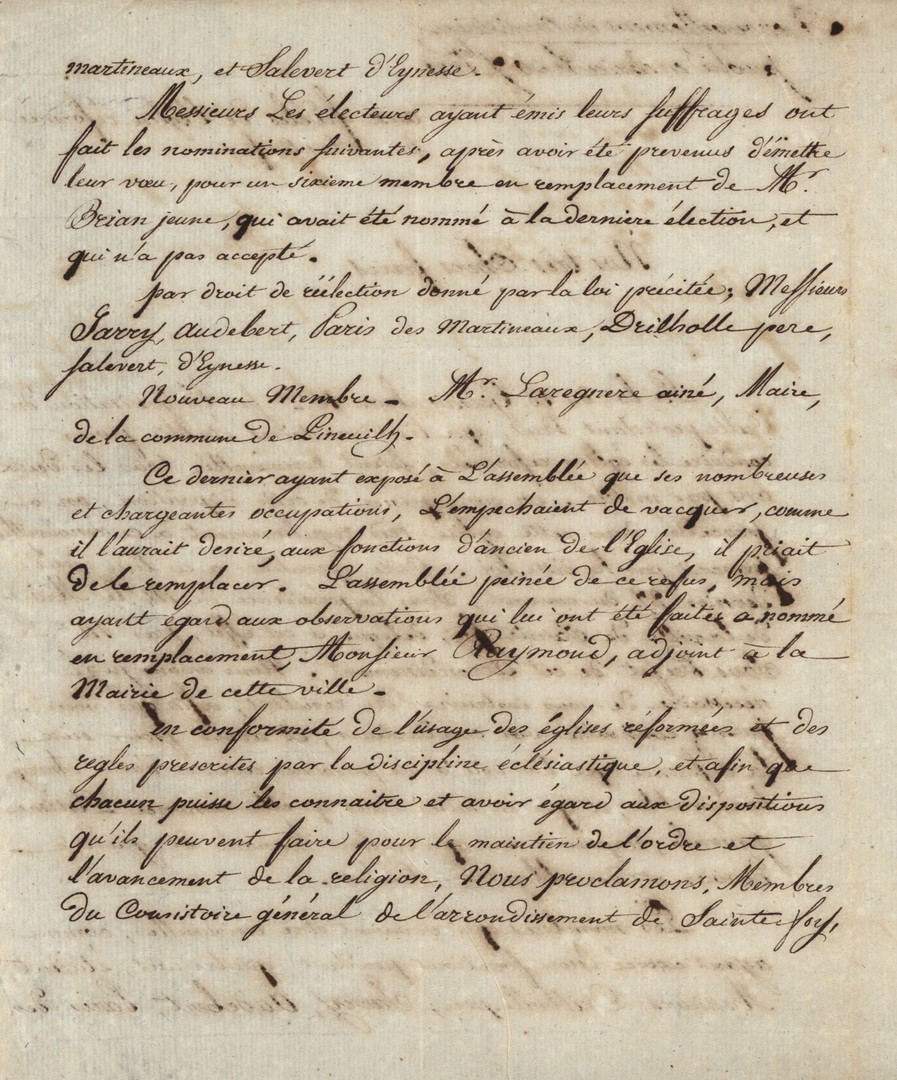 martineaux, et Salevert d'Eynesse.
Messieurs Les électeurs ayant émis leurs suffrages ont
fait les nominations suivantes, après avoir été prevenus d'émettre
leur vœu, pour un sixieme membre en remplacement de Mr.
Brian jeune, qui avait été nommé à la derniere élection, et
qui n'a pas accepté.
par droit de réélection donné par la loi précitée; Messieurs
Garry, Audebert, Paris des Martineaux, Drilholle pere,
Salevert, d'Eynesse.
Nouveau Membre. Mr. Laregnere ainé, Maire,
de la commune de Pineuilh.
Ce dernier ayant exposé à L'assemblée que ses nombreuses
et chargeantes occupations, L'empechaient de vacquer, comme
il l'aurait desiré, aux fonctions d'ancien de l'Eglise, il priait
de le remplacer. L'assemblée peinée de ce refus, mais
ayant égard aux observations qui lui ont été faites a nommé
en remplacement, Monsieur Raymond, adjoint à la
Mairie de cette ville.
en conformité de l'usage des églises réformées et des
regles prescrites par la discipline éclésiastique, et afin que
chacun puisse les connaitre et avoir égard aux dispositions
qu'ils peuvent faire pour le maintien de l'ordre et
l'avancement de la religion, Nous proclamons, Membres
du Consistoire général de l'arrondissement de Sainte-foy,